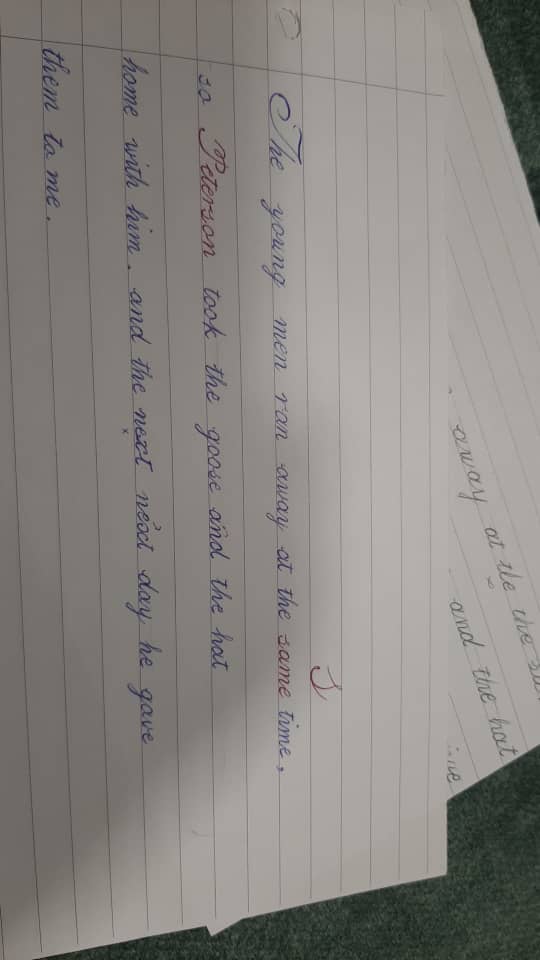 The young men ran away at the same time,
so Peterson took the goose and the hat
home with him. and the next neod day he gave
them to me.
away at the the
and the hat